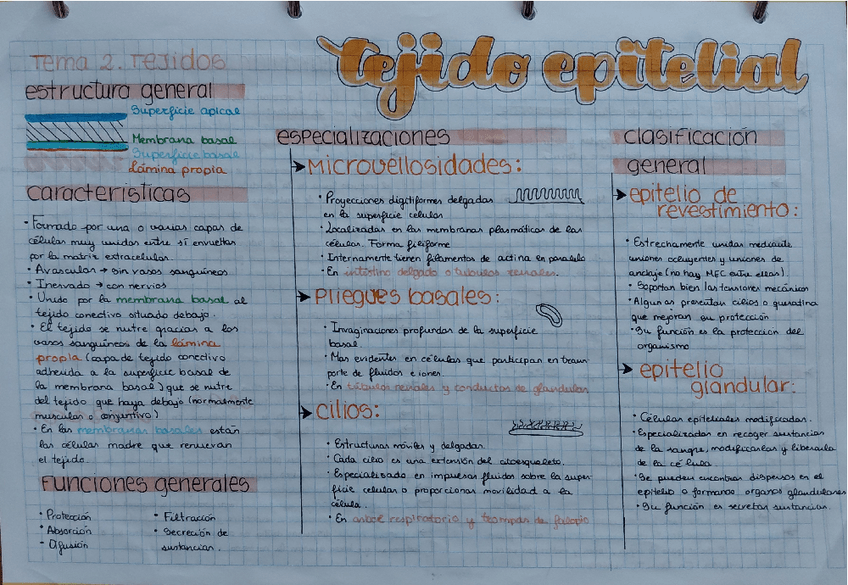 Tema 2. Tejidos
tejido epitelial
estructura general
Superficie apical
Membrana basal
Superficie basal
Lámina propia
características
· Formado por una o varias capas de
células muy unidas entre sí envueltas
por la matriz extracelular.
· Avascular → sin vasos sanguíneos.
· Inervado → con nervios
· Unido por la membrana basal al
tejido conectivo situado debajo.
· El tejido se nutre gracias a los
vasos sanguíneos de la lámina
propia (capa de tejido conectivo
adherida a la superficie basal de
la membrana basal) que se nutre
del tejido que haya debajo (normalmente
muscular o conjuntivo)
· En las membranas basales están
las células madre que renuevan
el tejido.
Funciones generales
· Protección
· Absorción
· Difusión
· Filtración
· Secreción de
sustancias.
especializaciones
➤ Microvellosidades:
· Proyecciones digitiformes delgadas
en la superficie celular
· Localizadas en las membranas plasmáticas de las
células. Forma filiforme
· Internamente tienen filamentos de actina en paralelo
· En intestino delgado o túbulos renales.
➤ Pliegues basales:
· Invaginaciones profundas de la superficie
basal.
· Mas evidentes en células que participan en trans-
porte de fluidos e iones
· En túbulos renales y conductos de glándulas
➤ cilios:
· Estructuras móviles y delgadas.
· Cada cilio es una extensión del citoesqueleto.
· Especializado en impulsar fluidos sobre la super-
ficie celular o proporcionar movilidad a la
célula.
· En árbol respiratorio y trompas de falopio
clasificación
general
➤ epitelio de
revestimiento:
· Estrechamente unidas mediante
uniones ocluyentes y uniones de
anclaje (no hay MEC entre ellas).
· Soportan bien las tensiones mecánicas
· Algunas presentan cilios o queratina
que mejoran su protección
· Su función es la protección del
organismo
➤ epitelio
glandular:
· Células epiteliales modificadas.
· Especializadas en recoger sustancias
de la sangre, modificarlas y liberarla
de la célula.
· Se pueden encontrar dispersos en el
epitelio o formando organos glandulares
· Su función es secretar sustancias.